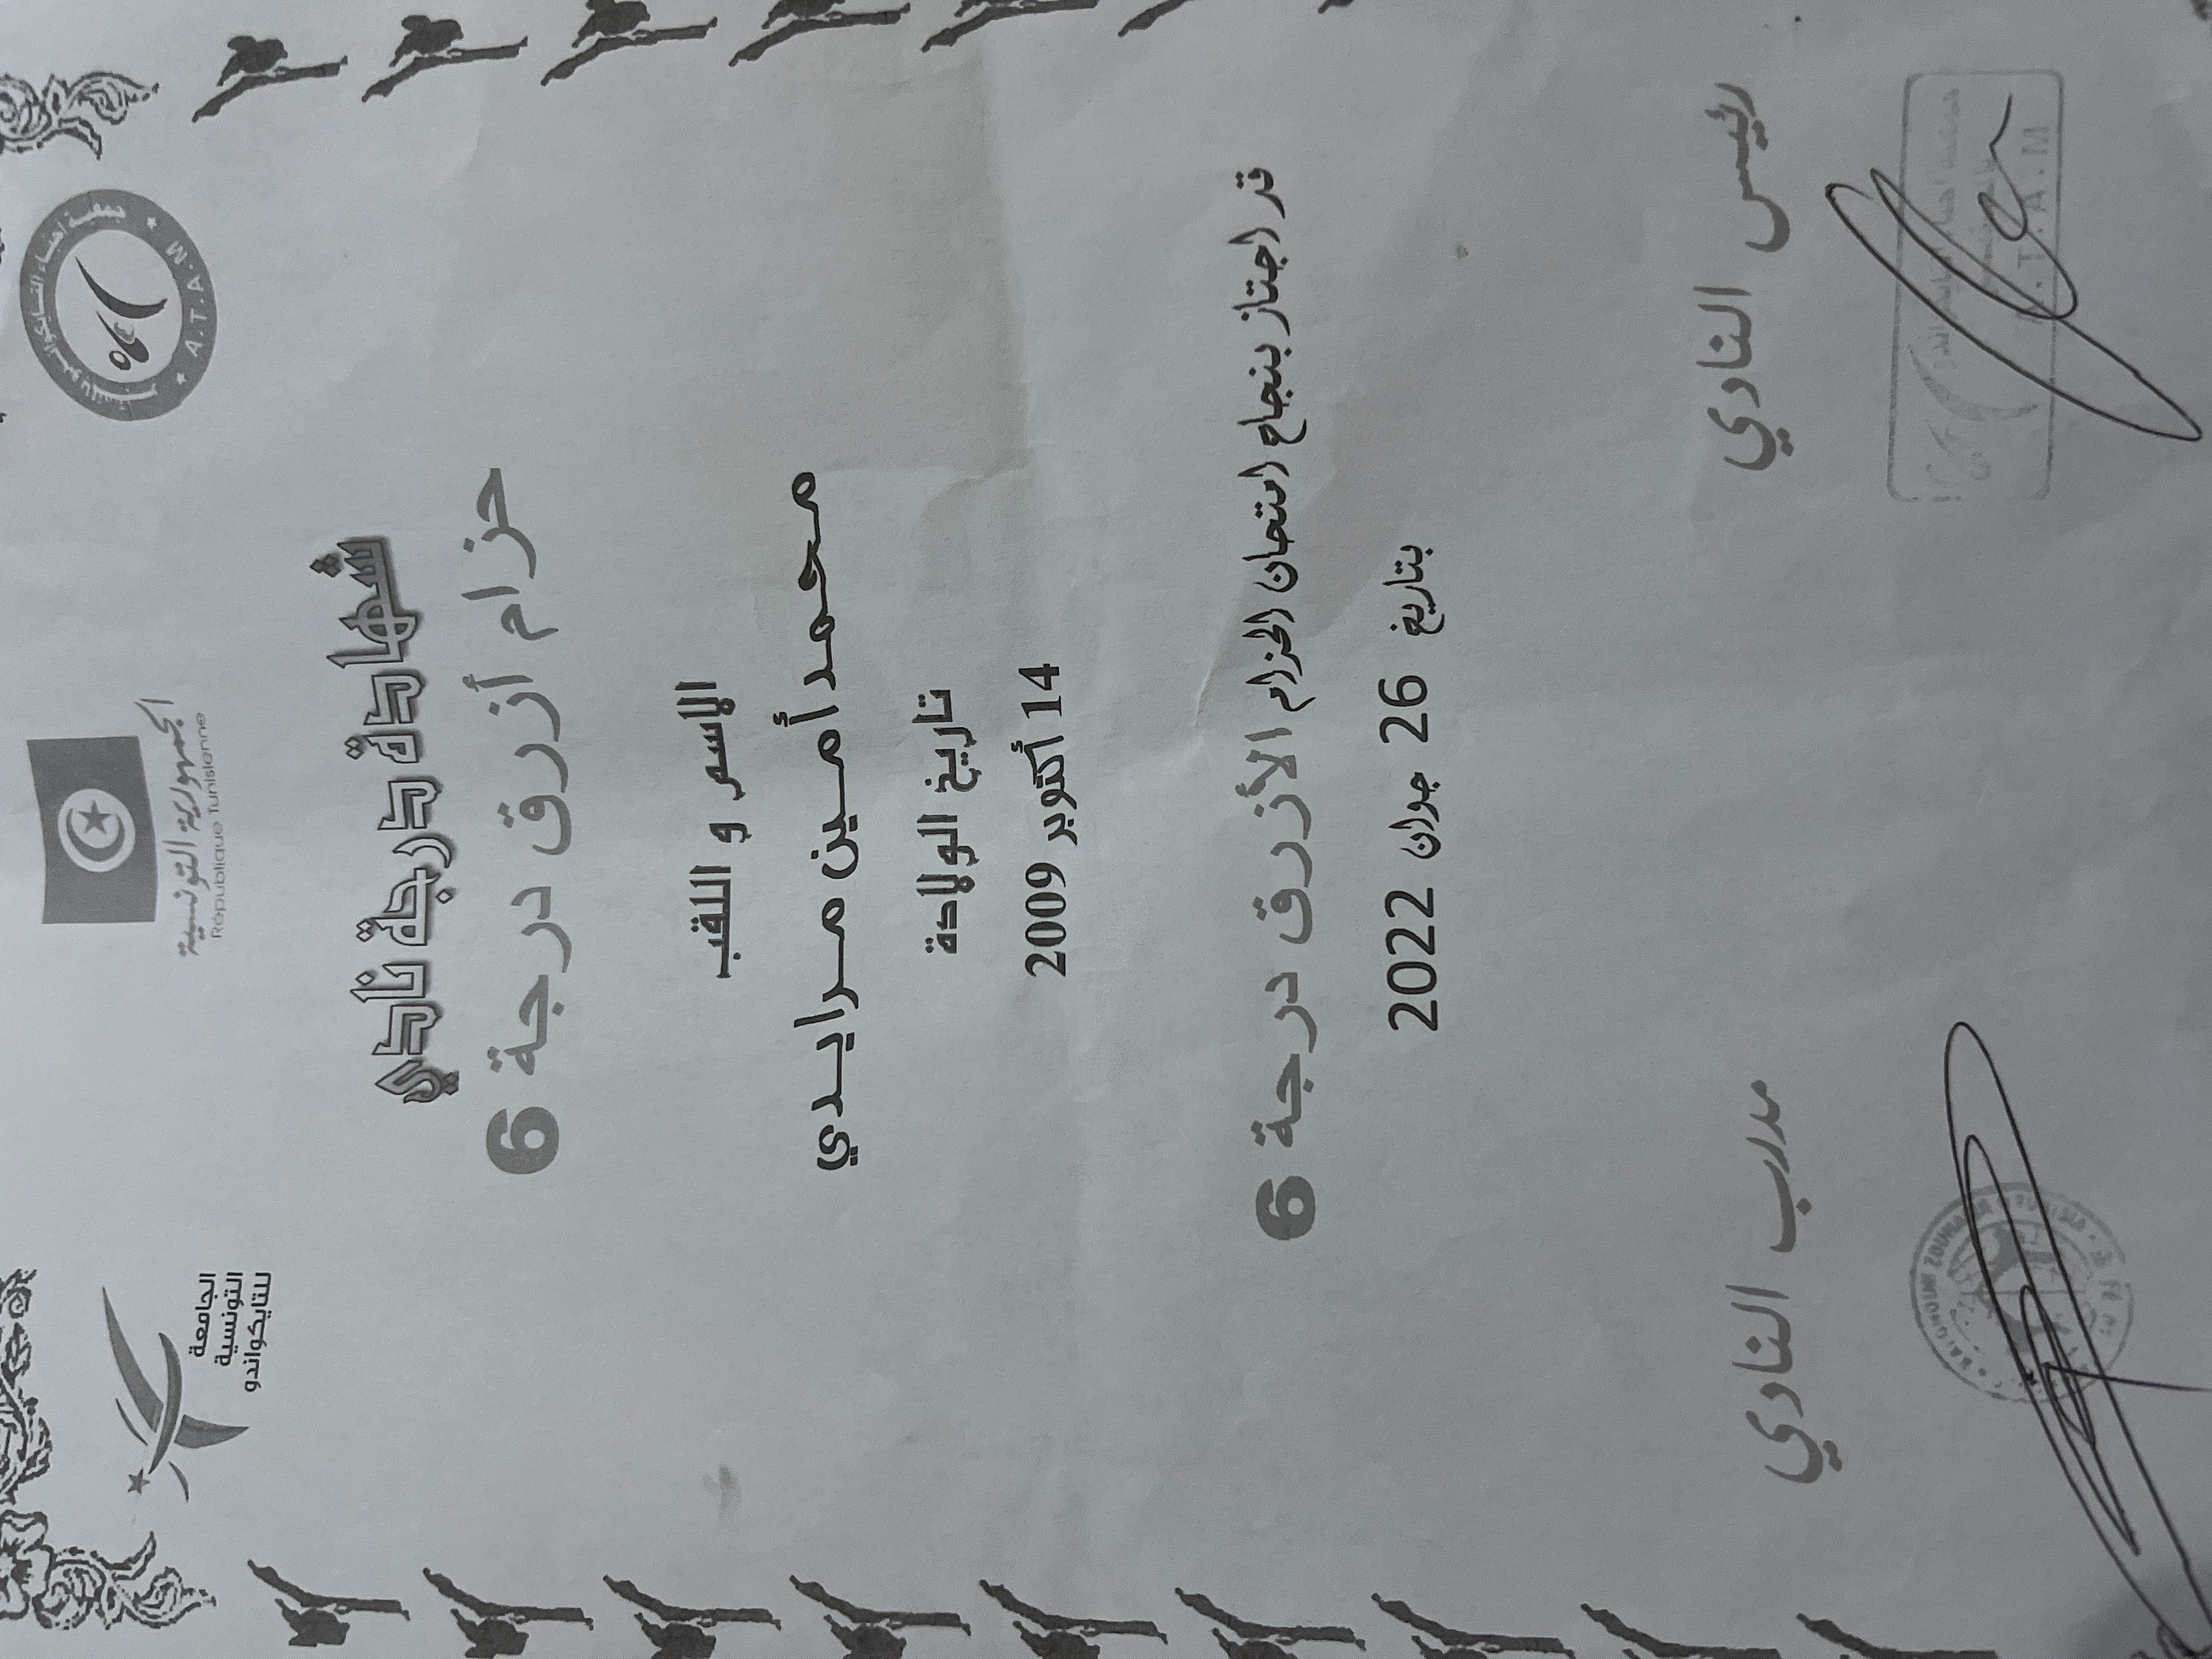 الجامعة
التونسية
للتايكواندو
الجمهورية التونسية
République Tunisienne
جمعية أحباء التايكواندو
A.T.A.M
شهادة درجة نادي
حزام أزرق درجة 6
الاسم و اللقب
محمد أمين مرايدي
تاريخ الولادة
14 أكتوبر 2009
قد اجتاز بنجاح امتحان الحزام الأزرق درجة 6
بتاريخ 26 جوان 2022
رئيس النادي
مدرب النادي
A.T.A.M
TUNISIA